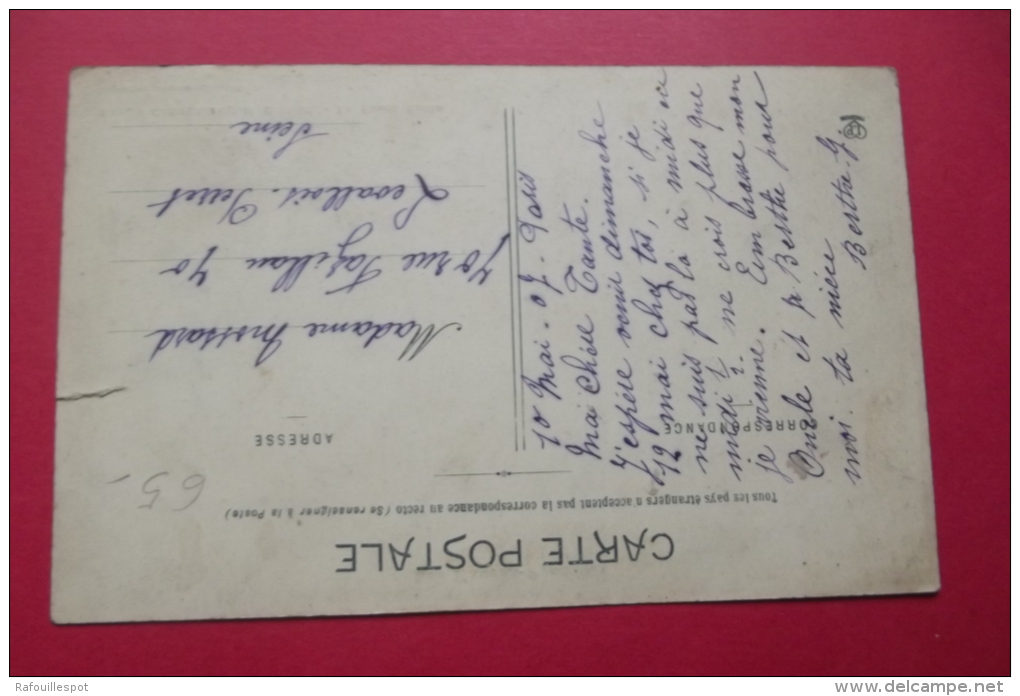 CARTE POSTALE
Tous les pays étrangers n'acceptent pas la correspondance au recto (Se renseigner à la Poste)
CORRESPONDANCE
ADRESSE
65-
10 Mai. 07. Paris
Ma Chère Tante.
J'espère venir dimanche
12 mai chez toi, si je
ne suis pas là à midi ou
midi ½ ne crois plus que
je vienne. Embrasse mon
Oncle et p. Berthe pour
moi. ta nièce
Berthe. J.
Madame
70 rue 70
Levallois. Perret
Seine
Rafouillespot
www.delcampe.net